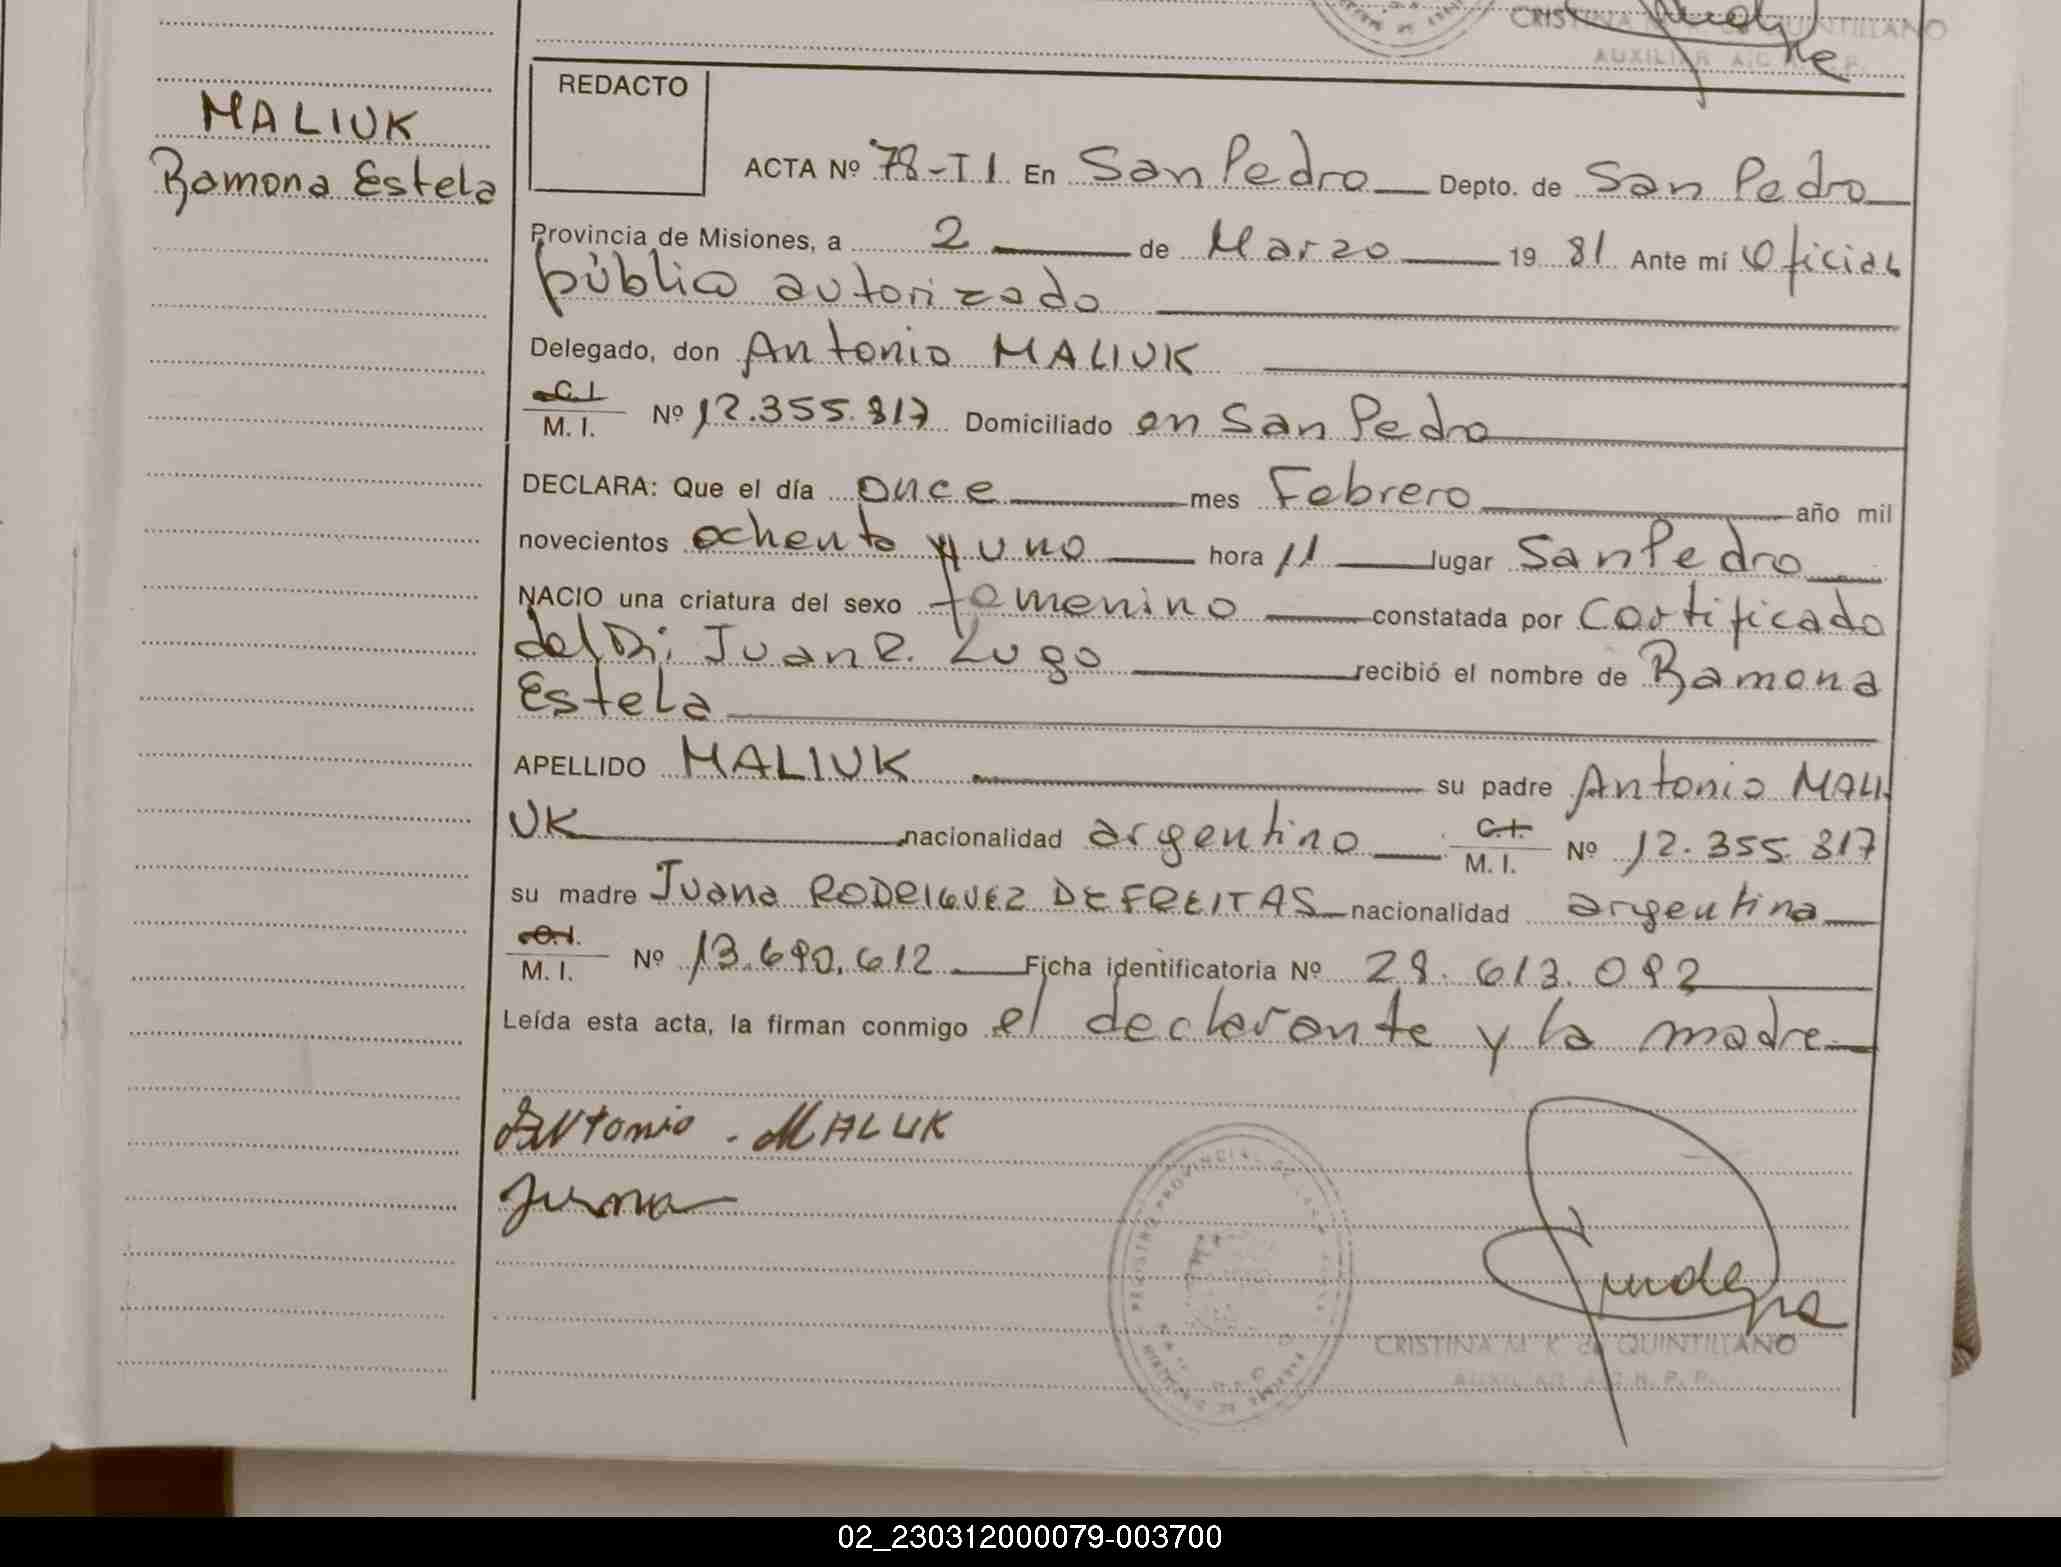 CRISTINA M K de QUINTILLANO
AUXILIAR A.C.R.P.P.
MALIUK
Ramona Estela
REDACTO
ACTA Nº 78-T I. En San Pedro Depto. de San Pedro
Provincia de Misiones, a 2 de Marzo 19 81 Ante mí Oficial
público autorizado
Delegado, don Antonio MALIUK
C.I. / M. I. Nº 12.355.817 Domiciliado en San Pedro
DECLARA: Que el día once mes Febrero año mil
novecientos ochenta y uno hora 11 lugar San Pedro
NACIO una criatura del sexo femenino constatada por Certificado
del Dr; Juan R. Lugo recibió el nombre de Ramona
Estela
APELLIDO MALIUK su padre Antonio MALI
UK nacionalidad argentino C.I. / M. I. Nº 12.355.817
su madre Juana RODRIGUEZ DE FREITAS nacionalidad argentina
C.I. / M. I. Nº 13.690.612 Ficha identificatoria Nº 28.613.092
Leída esta acta, la firman conmigo el declarante y la madre
Antonio. MALUK
Juana
REGISTRO PROVINCIAL DE LAS
CRISTINA M K de QUINTILLANO
AUXILIAR A.C.R.P.P.
02_230312000079-003700